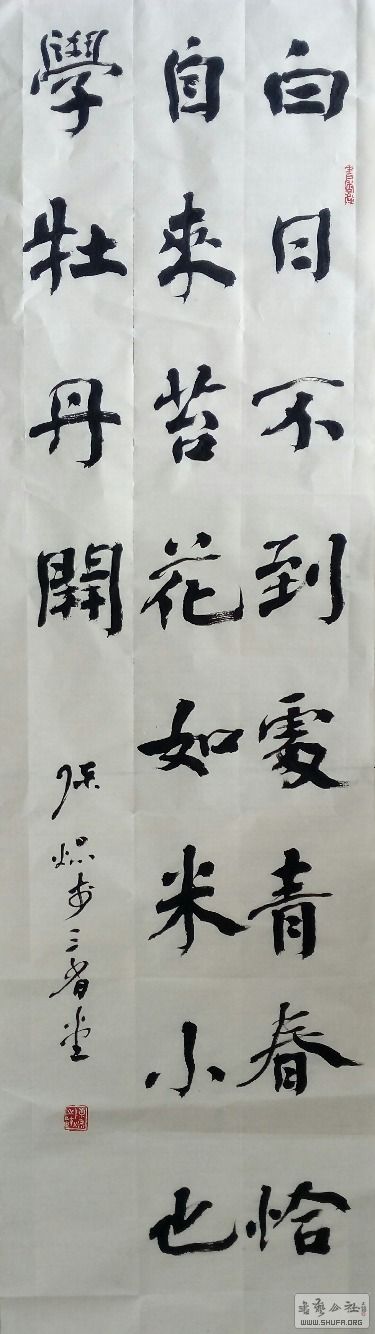 白日不到處青春恰
自來苔花如米小也
學牡丹開
三省堂
書藝公社
WWW.SHUFA.ORG